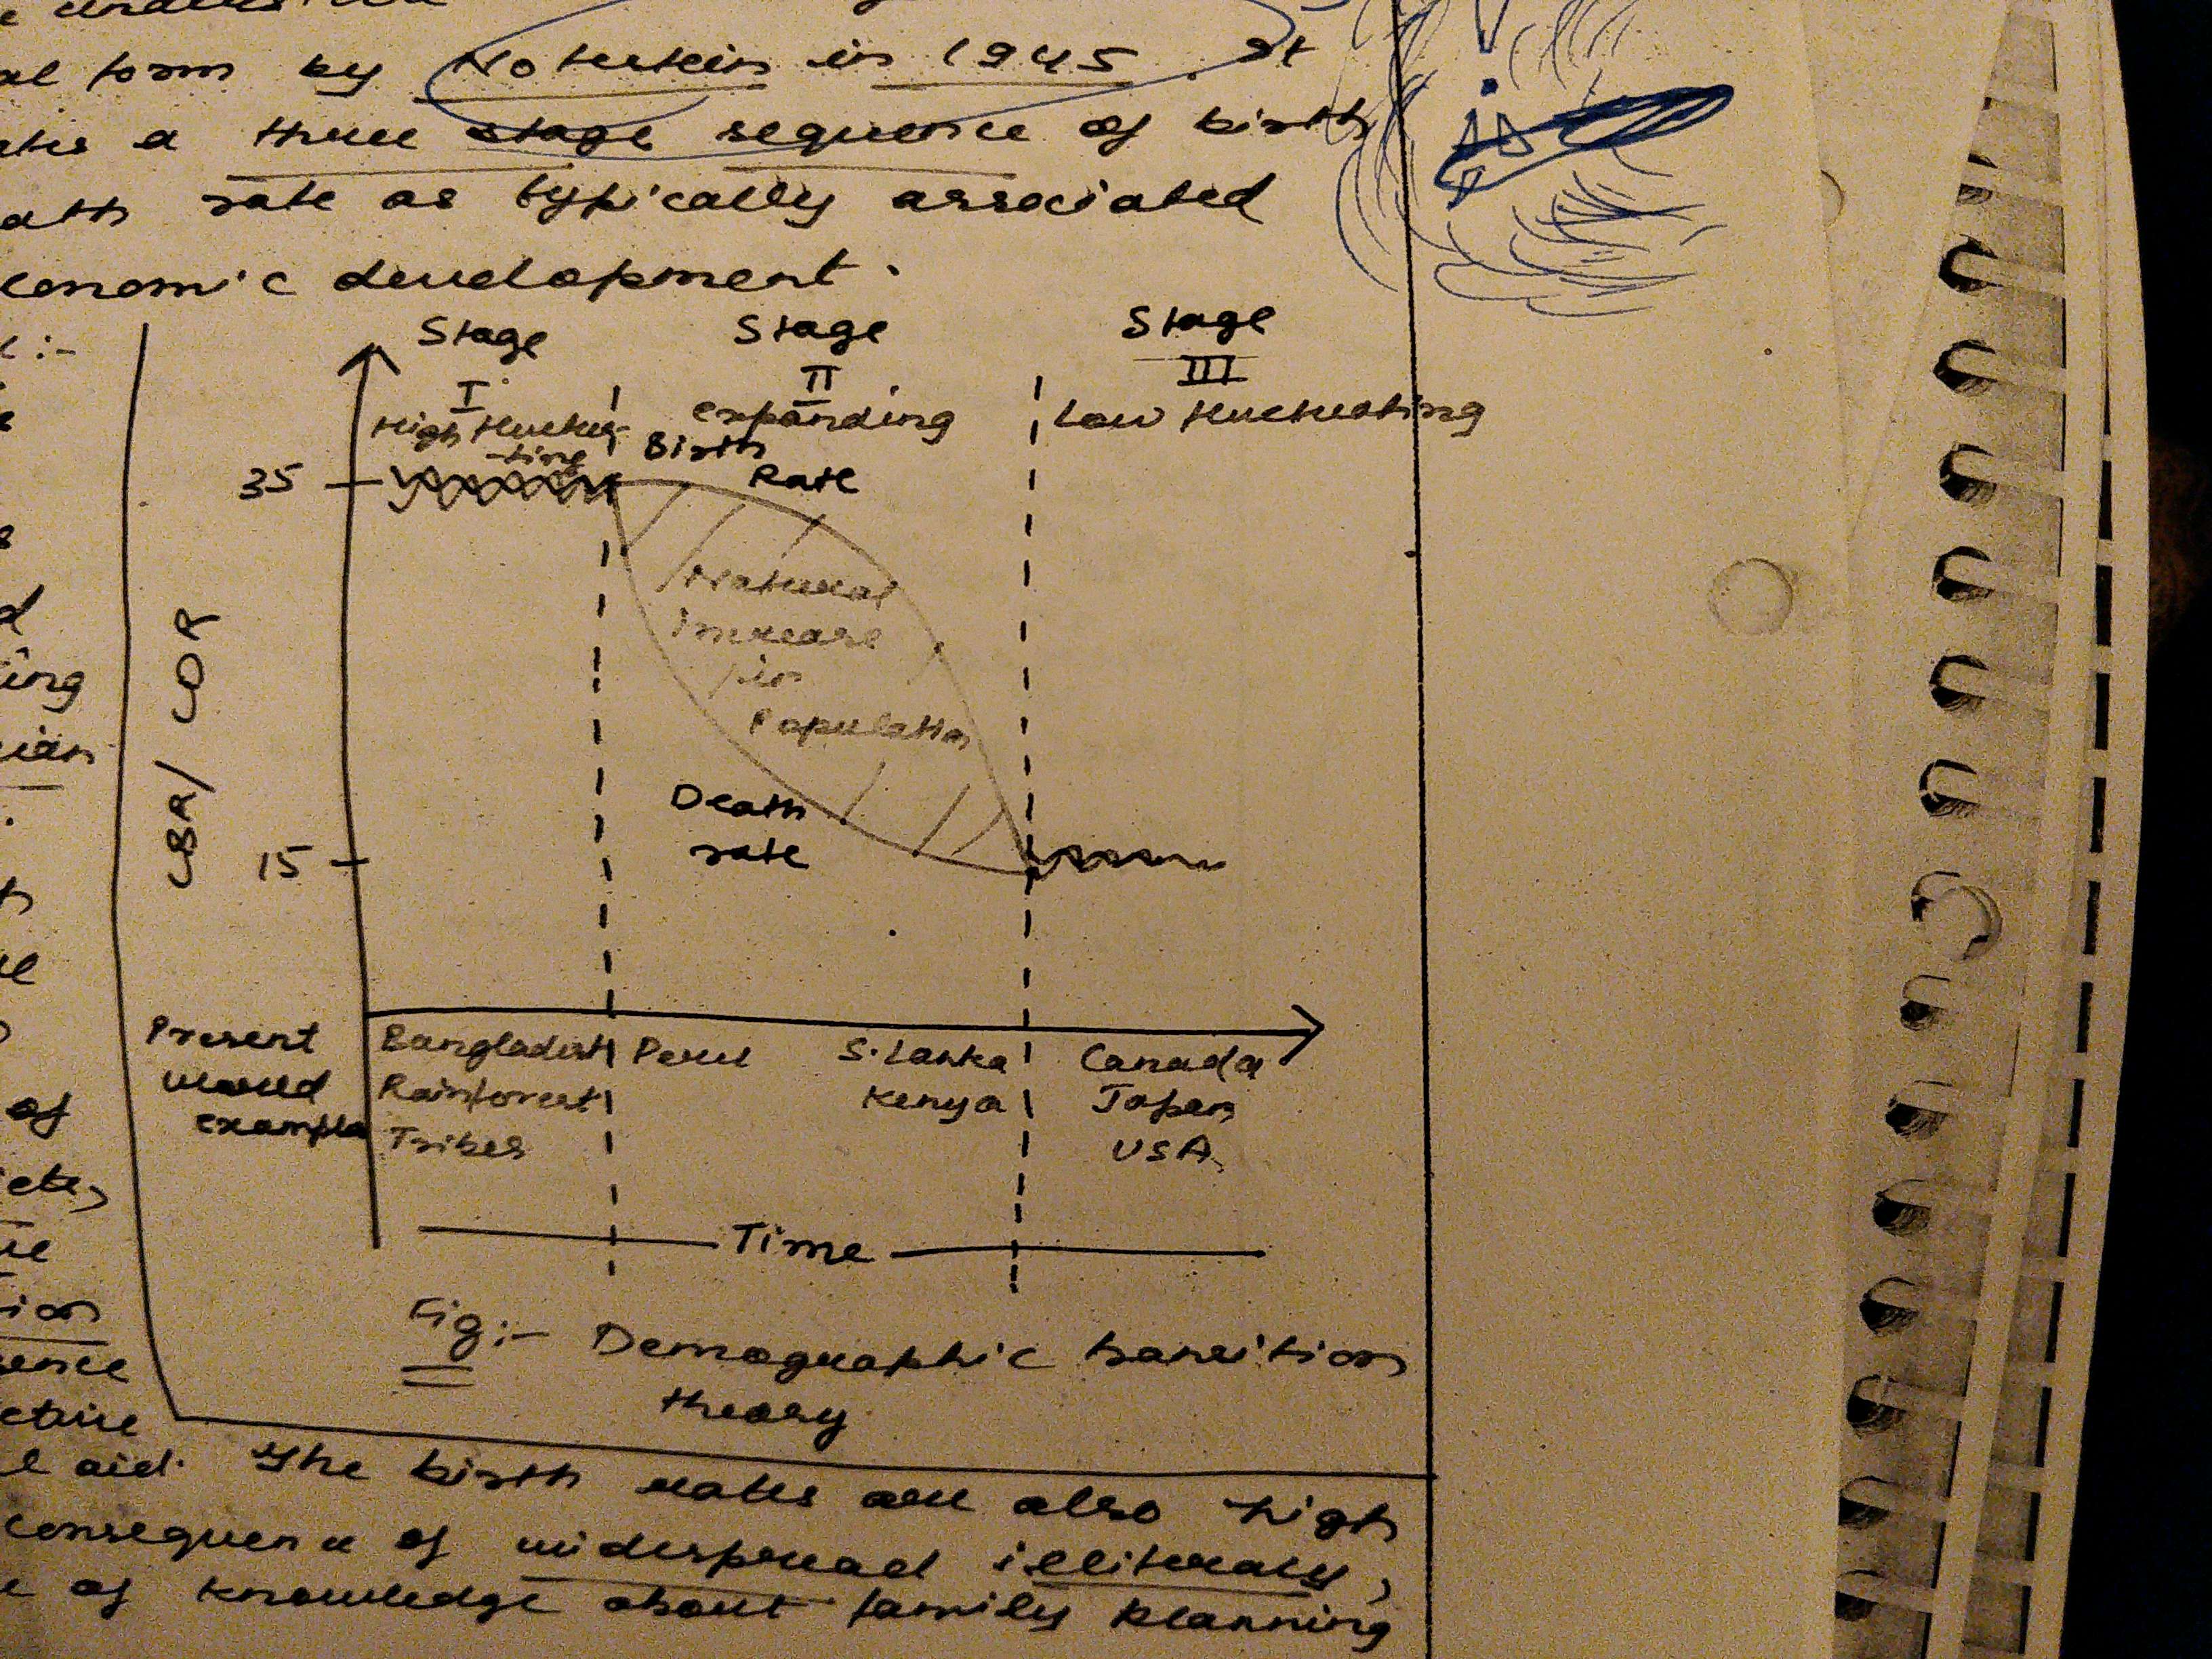 al form by Notestein in 1945. It
a three stage sequence of birth
rate as typically associated
conomic development.
Stage I
High fluctua-
-ting
Stage II
expanding
Stage III
Low fluctuating
Birth
Rate
35
Natural
Increase
in
Population
CBR/CDR
Death
rate
15
Present
world
example
Bangladesh
Rainforest
Tribes
Peru
S. Lanka
Kenya
Canada
Japan
USA
Time
Fig:- Demographic transition
theory
aid. The birth rates are also high
consequence of widespread illiteracy,
of knowledge about family planning